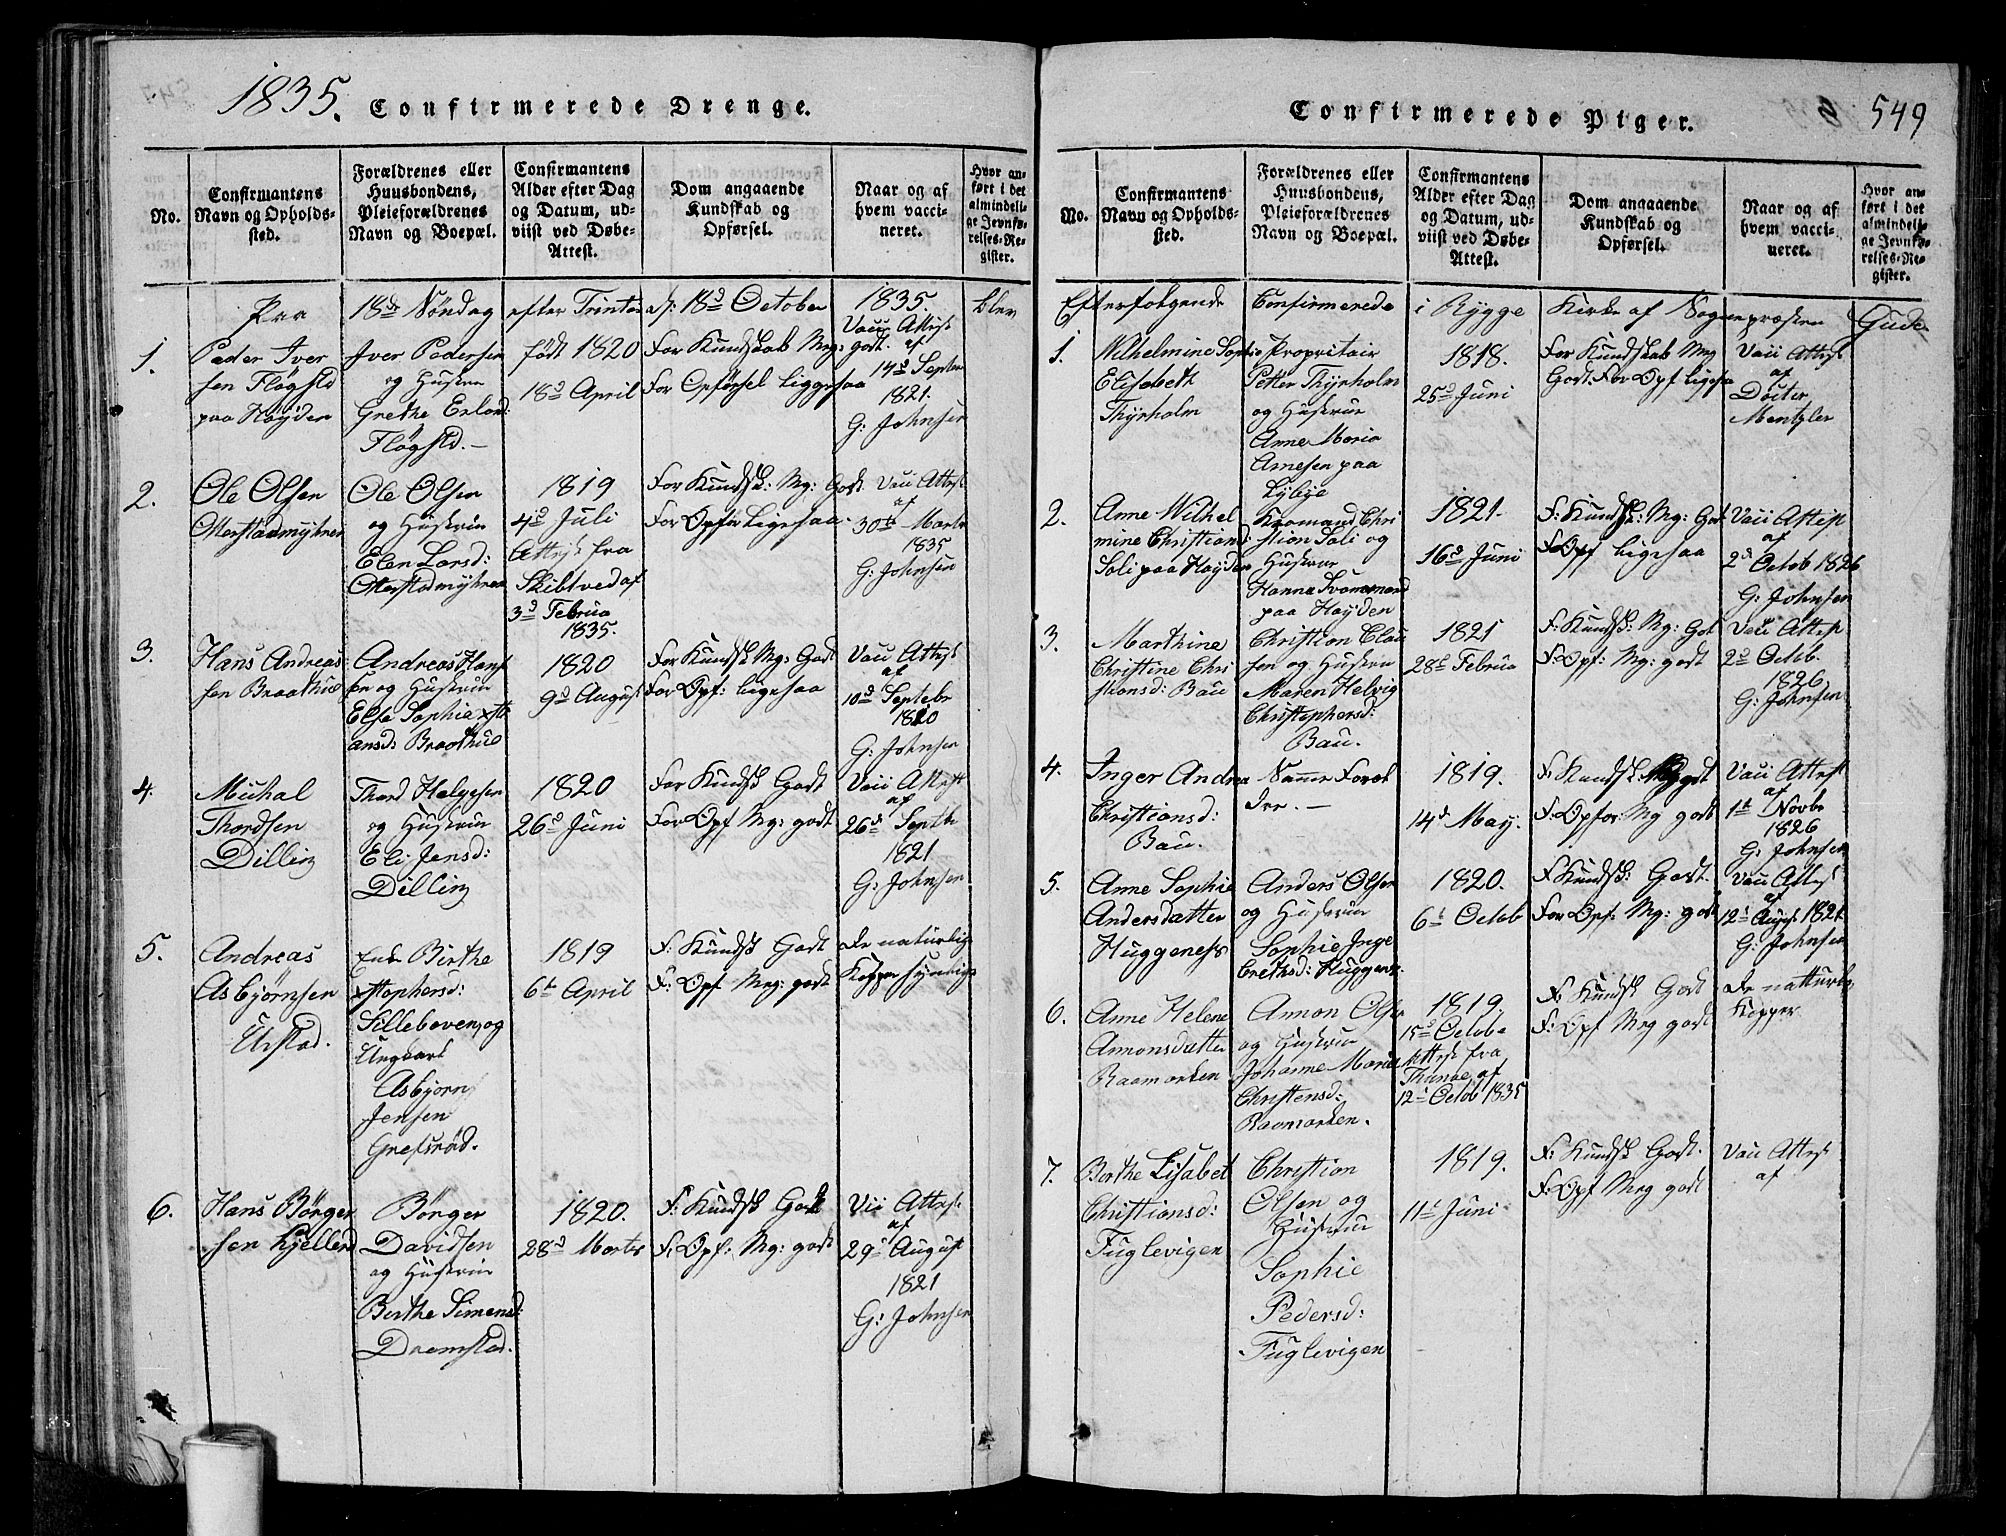 1835. Confirmerede Drenge.
No.
Confirmantens
Navn og Opholds-
sted.
Forældrenes eller
Huusbondens,
Pleieforældrenes
Navn og Boepæl.
Confirmantens
Alder efter Dag
og Datum, ud-
viist ved Døbe-
Attest.
Dom angaaende
Kundskab og
Opførsel.
Naar og af
hvem vacci-
neret.
Hvor an-
ført i det
almindeli-
ge Jevnfø-
relses-Re-
gister.
Paa 18de Söndag efter Trinita: 18d October 1835 blev
1.
Peder Iver
sen Fløgstd
paa Höyden
Iver Pedersen
og Hustru
Grethe Erland:
Fløgstd. —
födt 1820
18d April
For Kundskab Mg: godt.
For Opförsel Liggesaa
Vacc Attest
af
14d Septbr
1821.
G: Johnsen
2.
Ole Olsen
Ole Olsen
og Hustru
Elen Larsd:
1819
4d Juli
Attest fra
Skibtved af
3d Februa
1835.
For Kundsk: Mg: Godt
For Opför Ligesaa.
Vacc Attest
af
30te Marts
1835
G: Johnsen
3.
Hans Andreas
sen Braathue
Andreas Han
sen og Hustru
Else Sophie Xsti
ansd: Braathue
1820
9d August
For Kundsk Mg: Godt
For Opf: Ligesaa
Vacc Attest
af
10d Septebr
1820
G: Johnsen
4.
Michal
Thordsen
Dilling
Thord Helgesen
og Hustru
Eli Jensd:
Dilling
1820
26d Juni
For Kundsk Godt
For Opf Mg: godt
Vacc Attest
af
26d Septbr
1821
G: Johnsen
5.
Andreas
Asbjörnsen
Urstad.
Enke Birthe
Xstophersd:
Sillebøven og
Ungkarl
Asbjørn
Jensen
Grefsrød.
1819
6te April
F: Kundsk Godt
F: Opf Mg: godt
De naturlige
Kopper synlige
6.
Hans Börger
sen Kjellerød
Börger
Davidsen
og Hustru
Berthe Simensd:
Dramstad.
1820.
28d Marts
F: Kundsk Godt
F: Opf: Mg: godt
Vacc Attest
af
29d August
1821
G: Johnsen
Confirmerede Piger. 549
No.
Confirmantens
Navn og Opholds-
sted.
Forældrenes eller
Huusbondens,
Pleieforældrenes
Navn og Boepæl.
Confirmantens
Alder efter Dag
og Datum, ud-
viist ved Døbe-
Attest.
Dom angaaende
Kundskab og
Opførsel.
Naar og af
hvem vacci-
neret.
Hvor an-
ført i det
almindeli-
ge Jevnfø-
relses-Re-
gister.
Efterfölgende Confirmerede i Rygge Kirke af Sognepræsten Gude.
1.
Wilhelmine Sophie
Elisabeth
Thyrholm
Propritair
Petter Thyrholm
og Hustrue
Anne Maria
Arnesen paa
Lybye
1818.
25d Juni
For Kundskab Mg
Godt: For Opf Ligesa
Vacc Attest
af
Docter
Mentzler
2.
Anne Wilhel
mine Christiansd
Soli paa Høyden
Christian Soli og
Hustrue
Hanna
paa Høyden
1821.
16d Juni
F: Kundsk: Mg: Godt
F: Opf Ligesaa
Vacc Attest
af
2d Octob 1826
G: Johnsen
3.
Marthine
Christine Chri
stiansd: Bau
Christian Clau
sen og Hustru
Maren Helvig
Christophersd:
Bau.
1821
28d Februa
F: Kundsk: Mg: Got
F: Opf: Mg: godt
Vacc Attest
2d Octob.
1826
G: Johnsen
4.
Inger Andrea
Christiansd:
Bau.
Samme Foræl
dre. —
1819.
14d May.
F: Kundsk Mg godt
F: Opfør: Mg godt
Vacc Attest
af
1te Novbr
1826
G: Johnsen
5.
Anne Sophie
Andersdatter
Huggeness
Anders Olsen
og Hustrue
Sophie Inge
brethsd: Huggenes.
1820.
6te Octob
F: Kundsk: Godt.
For Opf: Mg: godt
Vacc Attest
af
12te August 1821
G: Johnsen
6.
Anne Helene
Ammonsdatter
Raamorken
Ammon Olsen
og Hustrue
Johanne Marie
Christensd:
Raamorken.
1819.
15d Octobe
Attest fra
Thunøe af
12te Octob 1835
F: Kundsk Godt
F: Opf Mg godt
De natturlig
Kopper
7.
Berthe Lisabet
Christiansd:
Fuglevigen
Christian
Olsen og
Hustrue
Sophie
Pedersd:
Fuglevigen
1819.
11te Juni
F: Kundsk Godt.
F: Opf Mg godt
Vacc Attest
af